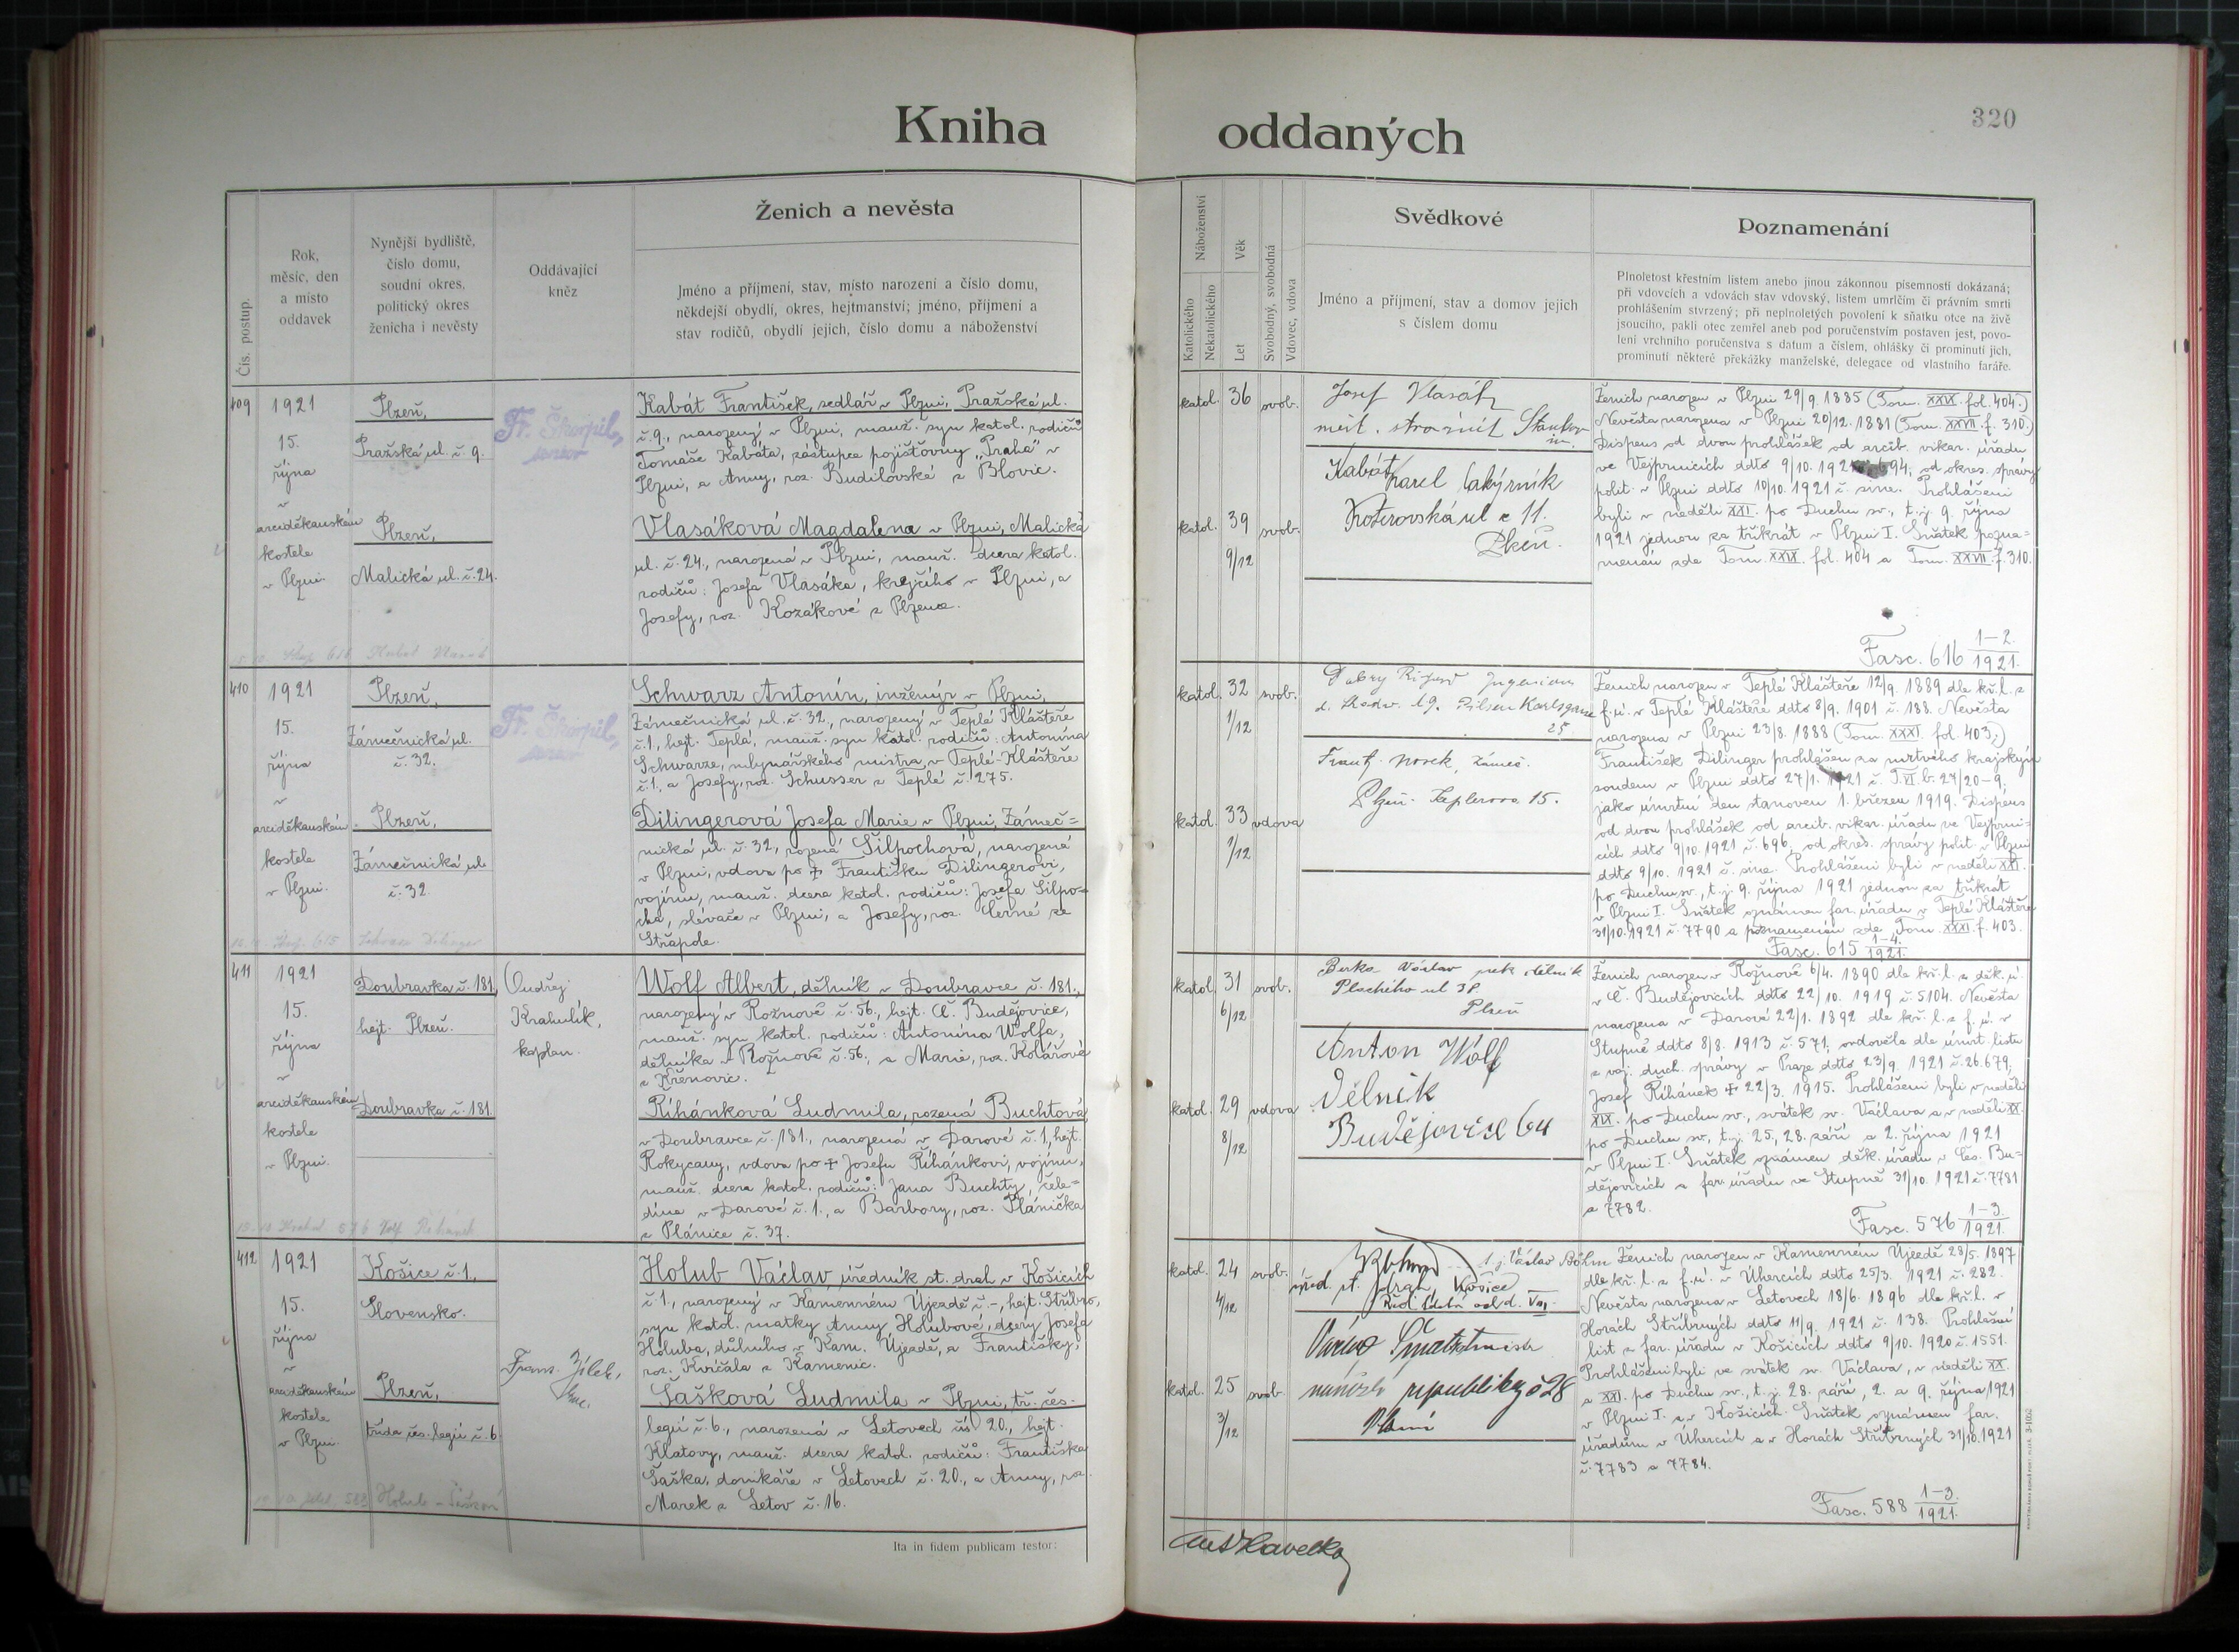 Kniha oddaných
320
Čís. postup.
Rok,
měsíc, den
a místo
oddavek
Nynější bydliště,
číslo domu,
soudní okres,
politický okres
ženicha i nevěsty
Oddávající
kněz
Ženich a nevěsta
Jméno a příjmení, stav, místo narození a číslo domu,
někdejší obydlí, okres, hejtmanství; jméno, příjmení a
stav rodičů, obydlí jejich, číslo domu a náboženství
Náboženství
Katolického
Nekatolického
Věk
Let
Svobodný, svobodná
Vdovec, vdova
Svědkové
Jméno a příjmení, stav a domov jejich
s číslem domu
Poznamenání
Plnoletost křestním listem anebo jinou zákonnou písemností dokázaná;
při vdovcích a vdovách stav vdovský, listem úmrlčím či právním smrti
prohlášením stvrzený; při neplnoletých povolení k sňatku otce na živě
jsoucího, pakli otec zemřel aneb pod poručenstvím postaven jest, povo-
lení vrchního poručenstva s datum a číslem, ohlášky či prominutí jich,
prominutí některé překážky manželské, delegace od vlastního faráře.
409
1921
15.
října
v
arciděkanském
kostele
v Plzni.
Plzeň,
Pražská ul. č. 9.
Plzeň,
Malická ul. č. 24.
Fr. Škorpil,
senior
Kabát František, sedlář v Plzni, Pražská ul.
č. 9., narozený v Plzni, manž. syn katol. rodičů
Tomáše Kabáta, zástupce pojišťovny „Praha" v
Plzni, a Anny, roz. Budilovské z Blovic.
Vlasáková Magdalena v Plzni, Malická
ul. č. 24., narozená v Plzni, manž. dcera katol.
rodičů: Josefa Vlasáka, krejčího v Plzni, a
Josefy, roz. Kozákové z Plzence.
katol. 36 svob.
katol. 39 9/12 svob.
Josef Vlasák
měst. strážník
Kabát Karel čalounník
Koterovská ul č 11.
Plzeň.
Ženich narozen v Plzni 29/9. 1885 (Tom. XXIX. fol. 404.)
Nevěsta narozena v Plzni 20/12. 1881 (Tom. XXVII. f. 310.)
Dispens od dvou prohlášek od arcib. vikar. úřadu
ve Vejprnicích ddto 9/10. 1921 694, od okres. správy
polit. v Plzni ddto 10/10. 1921 č. sine. Prohlášeni
byli v neděli XXI. po Duchu sv., t. j. 9. října
1921 jednou za třikrát v Plzni I. Sňatek pozna-
menán zde Tom. XXIX. fol. 404 a Tom. XXVII. f. 310.
Fasc. 616 1-2./1921.
410
1921
15.
října
v
arciděkanském
kostele
v Plzni.
Plzeň,
Zámečnická ul.
č. 32.
Plzeň,
Zámečnická ul.
č. 32.
Fr. Škorpil,
senior
Schwarz Antonín, inženýr v Plzni,
Zámečnická ul. č. 32., narozený v Teplé Klášteře
č. 1., hejt. Teplá, manž. syn katol. rodičů: Antonína
Schwarze, mlynářského mistra, v Teplé-Klášteře
č. 1., a Josefy, roz. Schusser z Teplé č. 275.
Dilingerová Josefa Marie v Plzni, Zámeč-
nická ul. č. 32., rozená Šilpochová, narozená
v Plzni, vdova po † Františku Dilingerovi,
vojínu, manž. dcera katol. rodičů: Josefa Šilpo-
cha, slévače v Plzni, a Josefy, roz. Černé ze
Střapole.
katol. 32 1/12 svob.
katol. 33 1/12 vdova
25
Frant. Nosek, zámeč.
Plzeň.
Ženich narozen v Teplé Klášteře 12/9. 1889 dle kř. l. z
f. ú. v Teplé Klášteře ddto 8/9. 1901 č. 188. Nevěsta
narozena v Plzni 23/8. 1888 (Tom. XXXI. fol. 403.)
František Dilinger prohlášen za mrtvého krajským
soudem v Plzni ddto 27/1. 1921 č. T. VI. b. 27/20-9;
jako úmrtní den stanoven 1. březen 1919. Dispens
od dvou prohlášek od arcib. vikar. úřadu ve Vejprni-
cích ddto 9/10. 1921 č. 696, od okres. správy polit. v Plzni
ddto 9/10. 1921 č. sine. Prohlášeni byli v neděli XXI.
po Duchu sv., t. j. 9. října 1921 jednou za třikrát
v Plzni I. Sňatek oznámen far. úřadu v Teplé Klášteře
31/10. 1921 č. 7790 a poznamenán zde Tom. XXXI. f. 403.
Fasc. 615 1-4./1921.
411
1921
15.
října
v
arciděkanském
kostele
v Plzni.
Doubravka č. 181,
hejt. Plzeň.
Doubravka č. 181.
Ondřej
Krahulík,
kaplan.
Wolf Albert, dělník v Doubravce č. 181.,
narozený v Rožnově č. 56., hejt. Č. Budějovice,
manž. syn katol. rodičů: Antonína Wolfa,
dělníka v Rožnově č. 56., a Marie, roz. Kolářové
z Křenovic.
Řihánková Ludmila, rozená Buchtová
v Doubravce č. 181., narozená v Darové č. 1., hejt.
Rokycany, vdova po † Josefu Řihánkovi, vojínu,
manž. dcera katol. rodičů: Jana Buchty, čele-
dína v Darové č. 1., a Barbory, roz. Plánička
z Plánice č. 37.
katol. 31 6/12 svob.
katol. 29 8/12 vdova
Václav dělník
Plachého ul 38
Plzeň
Anton Wolf
Dělník
Budějovice 64
Ženich narozen v Rožnově 6/4. 1890 dle kř. l. z děk. ú.
v Č. Budějovicích ddto 22/10. 1919 č. 5104. Nevěsta
narozena v Darové 22/1. 1892 dle kř. l. z f. ú. v
Stupně ddto 8/8. 1913 č. 571, ovdověla dle úmrt. listu
z voj. duch. správy v Praze ddto 23/9. 1921 č. 26.679,
Josef Řihánek † 22/3. 1915. Prohlášeni byli v neděli
XIX. po Duchu sv., svátek sv. Václava a v neděli XX.
po Duchu sv., t. j. 25., 28. září a 2. října 1921
v Plzni I. Sňatek oznámen děk. úřadu v Čes. Bu-
dějovicích a far. úřadu ve Stupně 31/10. 1921 č. 7781
a 7782.
Fasc. 576 1-3./1921.
412
1921
15.
října
v
arciděkanském
kostele
v Plzni.
Košice č. 1,
Slovensko.
Plzeň,
třída čes. legií č. 6.
Frant. Jílek,
Holub Václav, úředník st. drah v Košicích
č 1., narozený v Kamenném Újezdě č. -, hejt. Stříbro,
syn katol. matky Anny Holubové, dcery Josefa
Holuba, důlního v Kam. Újezdě, a Františky,
roz. Kvíčala z Kamenic.
Šašková Ludmila v Plzni, tř. čes.
legií č. 6., narozená v Letovech čís 20., hejt.
Klatovy, manž. dcera katol. rodičů: Františka
Šaška, domkáře v Letovech č. 20., a Anny, roz.
Marek z Letov č. 16.
katol. 24 4/12 svob.
katol. 25 3/12 svob.
t. j. Václav Böhm
úřed. st. drah, Košice
náměstí republiky č 28
Ženich narozen v Kamenném Újezdě 28/5. 1897
dle kř. l. z f. ú. v Úhercích ddto 25/3. 1921 č. 282.
Nevěsta narozena v Letovech 18/6. 1896 dle kř. l. v
Horách Stříbrných ddto 11/9. 1921 č. 138. Prohlášní
list z far. úřadu v Košicích ddto 9/10. 1920 č. 1551.
Prohlášeni byli ve svátek sv. Václava, v neděli XX.
a XXI. po Duchu sv., t. j. 28. září, 2. a 9. října 1921
v Plzni I. a v Košicích. Sňatek oznámen far.
úřadům v Úhercích a v Horách Stříbrných 31/10. 1921
č. 7783 a 7784.
Fasc. 588 1-3./1921.
Ita in fidem publicam testor: